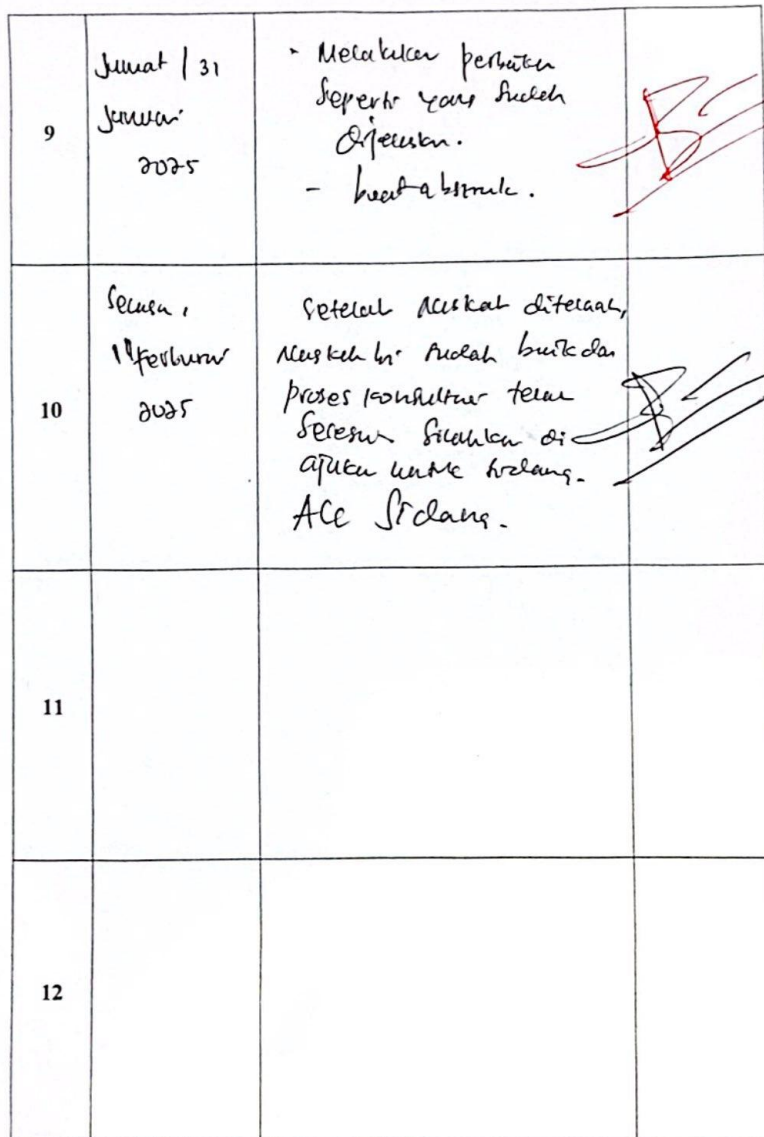 9
Jumat / 31
Januari
2025
- Melakukan perbaikan
seperti yang sudah
dijelaskan.
- buat abstrak.
10
Selasa,
Februari
2025
Setelah naskah ditelaah,
naskah ini sudah baik dan
proses konsultasi telah
selesai silahkan di
ajukan untuk sidang.
ACC Sidang.
11
12